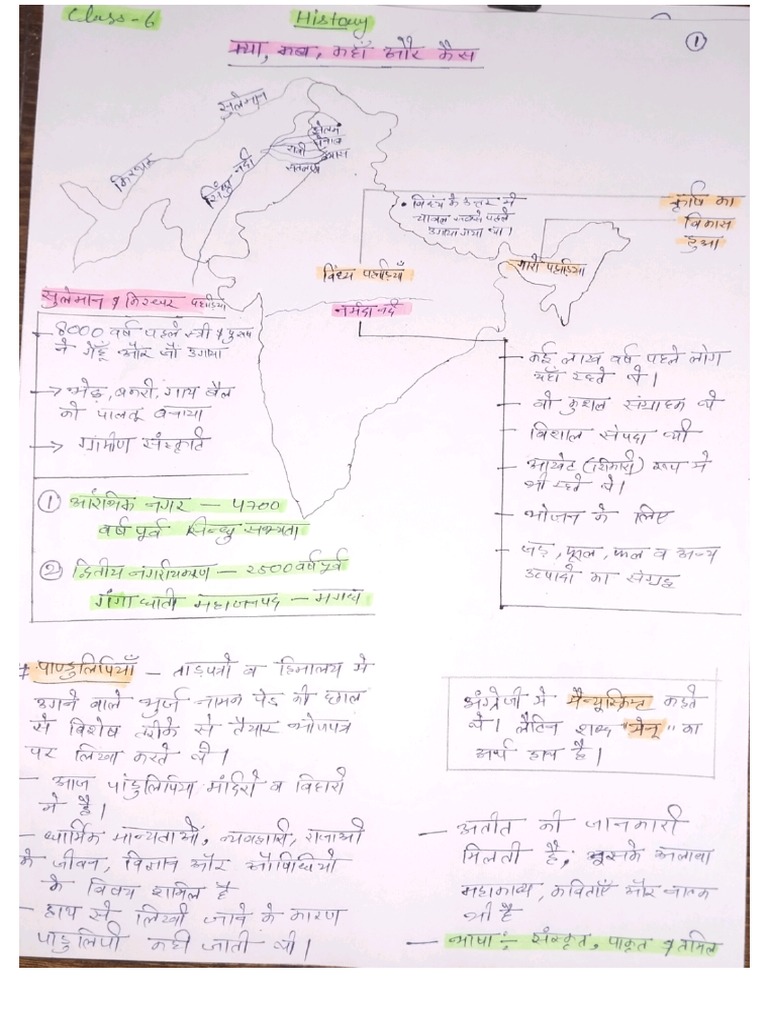 Class-6
History
1
क्या, कब, कहाँ और कैसे
सुलेमान
किरथर
सिंधु नदी
झेलम
चेनाब
रावी
व्यास
सतलुज
• विंध्य के उत्तर में
चावल सबसे पहले
उगाया गया था।
कृषि का
विकास
हुआ
गारो पहाड़ियाँ
विंध्य पहाड़ियाँ
नर्मदा नदी
सुलेमान व किरथर पहाड़ियाँ
- 8000 वर्ष पहले स्त्री व पुरुष
ने गेहूँ और जौ उगाया
→ भेड़, बकरी, गाय बैल
को पालतू बनाया
→ ग्रामीण संस्कृति
① आरंभिक नगर – 4700
वर्ष पूर्व सिन्धु सभ्यता
② द्वितीय नगरीयकरण – 2500 वर्ष पूर्व
गंगा घाटी महाजनपद – मगध
- कई लाख वर्ष पहले लोग
यहाँ रहते थे।
- वो कुशल संग्राहक थे
- विशाल संपदा थी
- आखेट (शिकारी) रूप में
भी रहते थे।
- भोजन के लिए
- जड़, फूल, फल व अन्य
उत्पादों का संग्रह
# पाण्डुलिपियाँ – ताड़पत्रों व हिमालय में
उगने वाले भूर्ज नामक पेड़ की छाल
से विशेष तरीके से तैयार भोजपत्र
पर लिखा करते थे।
- आज पांडुलिपिया मंदिरों व विहारों
में है।
- धार्मिक मान्यताओं, व्यवहारों, राजाओं
के जीवन, विज्ञान और औषधियों
के विषय शामिल है
- हाथ से लिखी जाने के कारण
पांडुलिपी कही जाती थी।
अंग्रेजी में मैन्यूस्क्रिप्ट कहते
थे। लैटिन शब्द "मेनू" का
अर्थ हाथ है।
- अतीत की जानकारी
मिलती है; इसके अलावा
महाकाव्य, कविताएँ और नाटक
भी है
- भाषा :- संस्कृत, पाकृत व तमिल